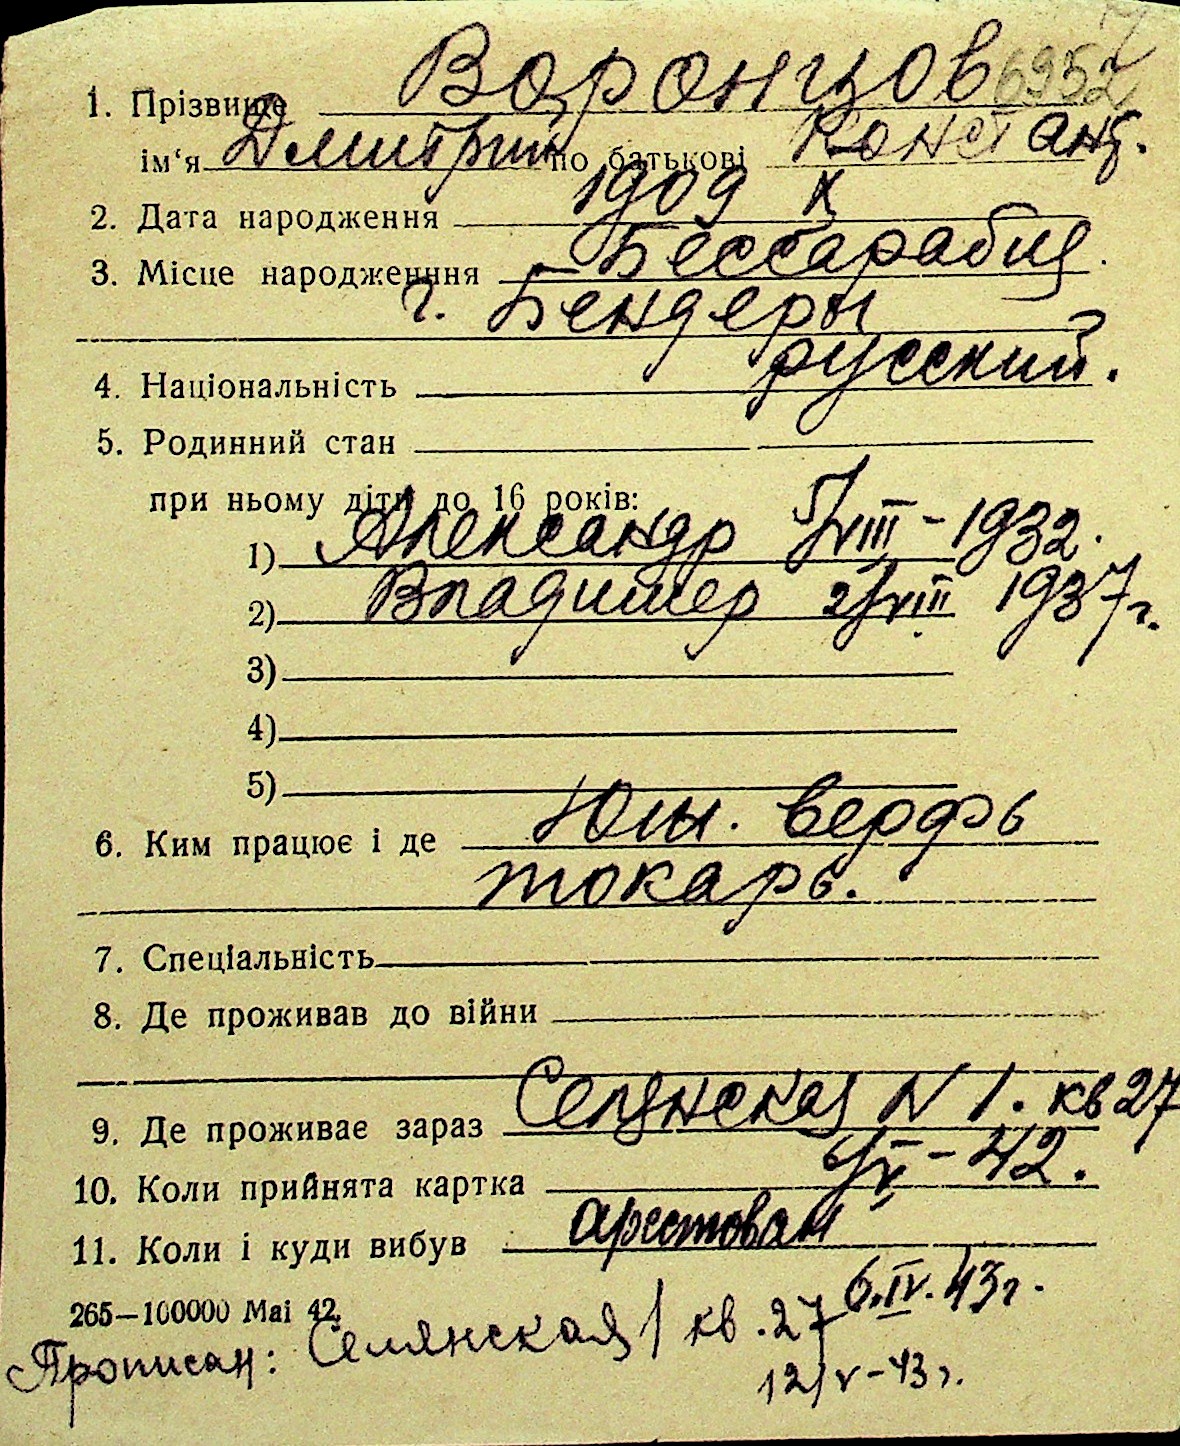 6952
1. Прізвище Воронцов
ім‘я Дмитрий по батькові Констант.
2. Дата народження 1909 X
3. Місце народженння Бессарабия
г. Бендеры
4. Національність русский.
5. Родинний стан
при ньому діти до 16 років:
1) Александр 5/VIII - 1932.
2) Владимер 2/VIII 1937 г.
3)
4)
5)
6. Ким працює і де Южн. верфь
токарь.
7. Спеціальність
8. Де проживав до війни
9. Де проживає зараз Селянская N 1. кв 27
10. Коли прийнята картка /V - 42.
11. Коли і куди вибув арестован
6.IV.43 г.
265—100000 Mai 42.
Прописан: Селянская 1 кв. 27
12/V - 43 г.